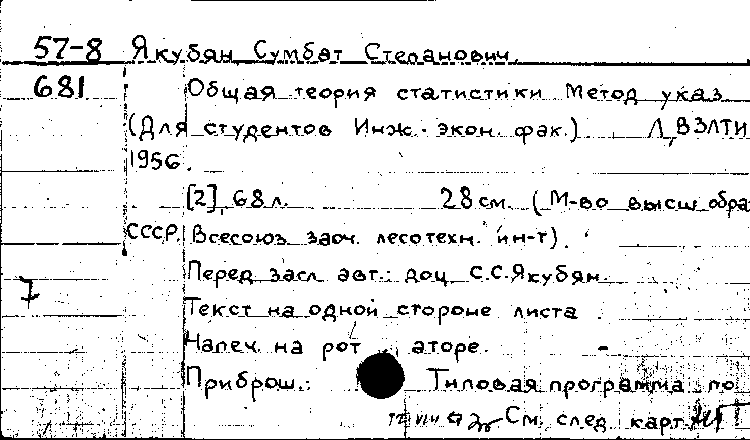 57-8 Якубян Сумбат Степанович.
681 Общая теория статистики Метод указ
(Для студентов Инж. экон. фак.) Л, ВЗЛТИ
1956.
[2], 68 л. 28 см. (М-во высш обра
СССР. Всесоюз заоч. лесотехн. ин-т).
Перед загл авт.: доц С.С.Якубян.
7
Текст на одной стороне листа.
Напеч. на рот аторе.
Приброш.: Типовая программа по
См. след. карт.